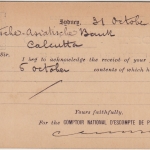 Sydney, 31 October
Bank
Calcutta
Sir,
I beg to acknowledge the receipt of your
5 October contents of which h
Yours faithfully,
For the COMPTOIR NATIONAL D'ESCOMPTE DE P